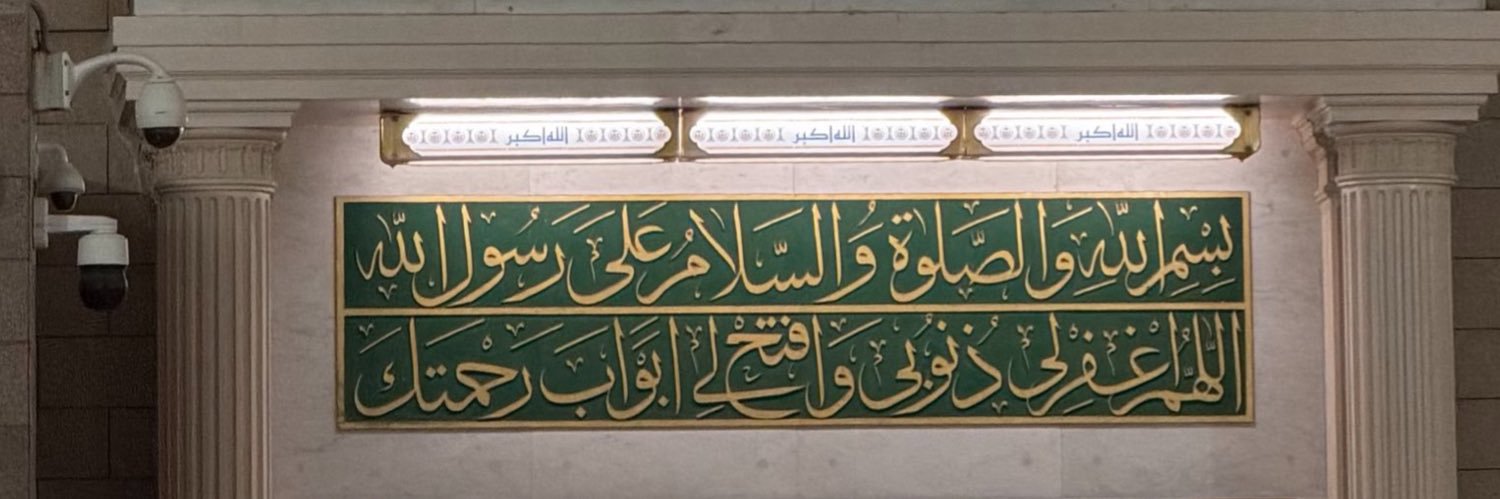 الله اكبر الله اكبر الله اكبر
بِسْمِ اللهِ وَالصَّلٰوةُ وَالسَّلَامُ عَلىٰ رَسُولِ اللّٰه
اللّٰهُمَّ اغْفِرْلِي ذُنُوبِي وَافْتَحْ لِي اَبْوَابَ رَحْمَتِكَ